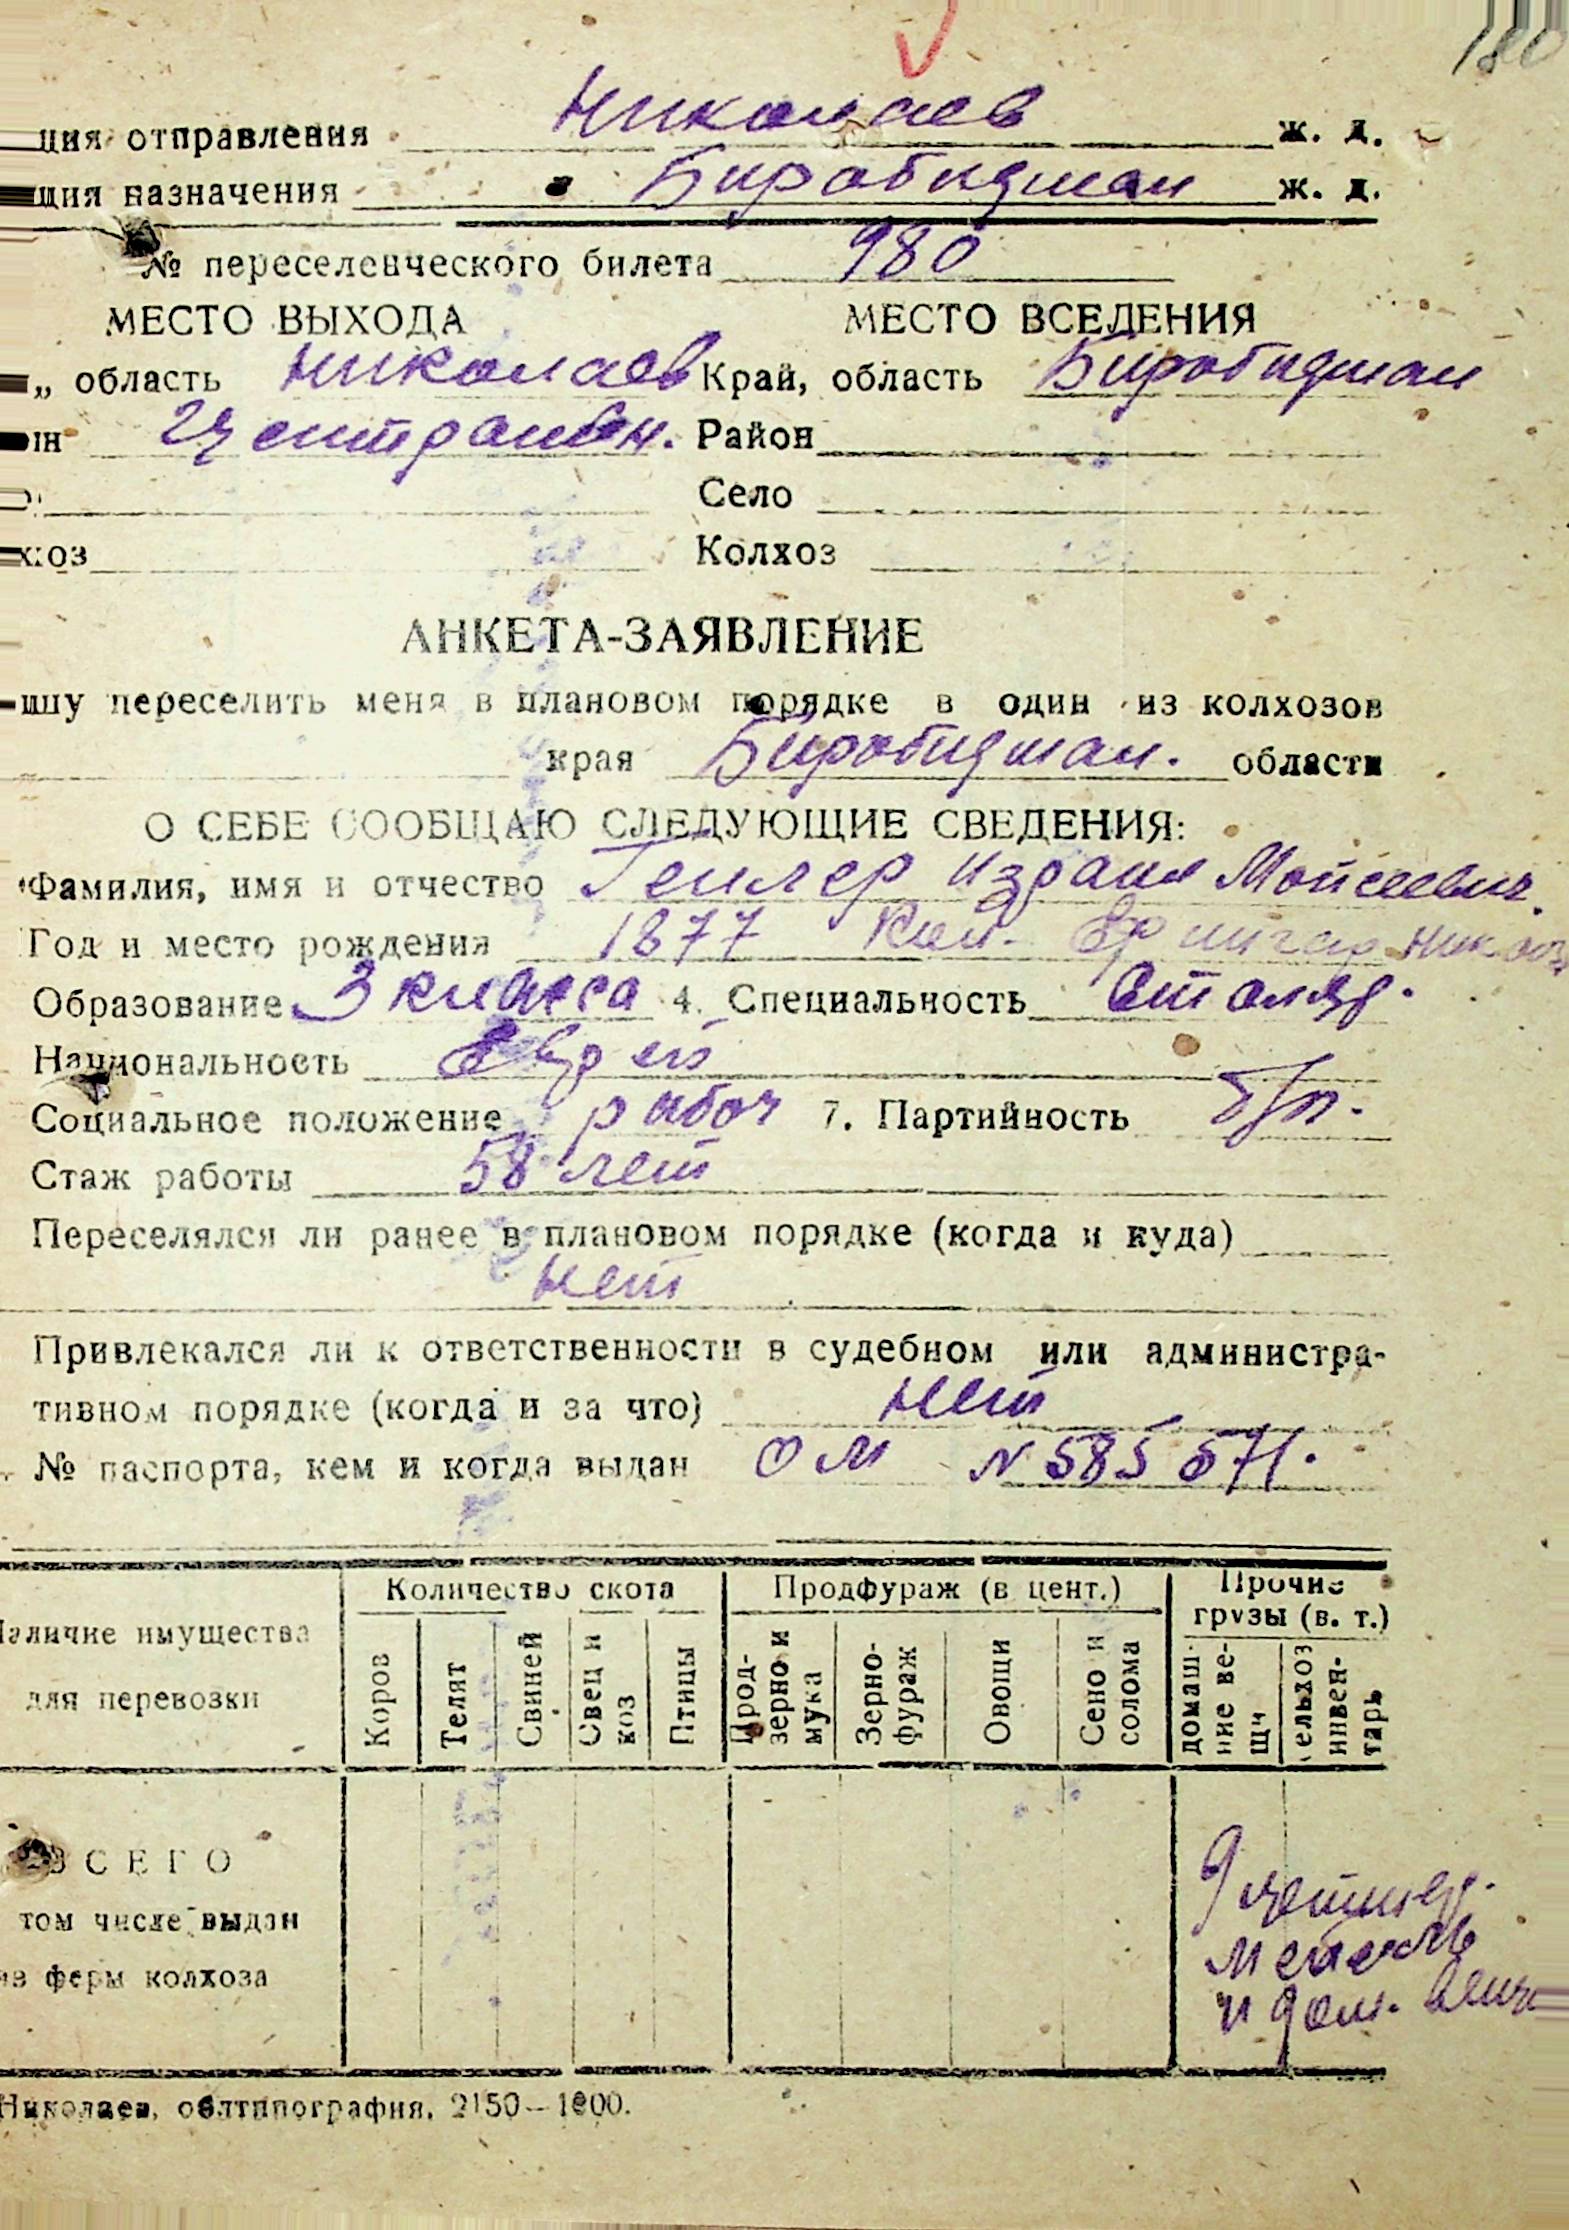 180
ция отправления Николаев ж. д.
ция назначения Биробиджан ж. д.
№ переселенческого билета 980
МЕСТО ВЫХОДА МЕСТО ВСЕЛЕНИЯ
„ область Николаев Край, область Биробиджан
йн Центральн. Район
Село
хоз Колхоз
АНКЕТА-ЗАЯВЛЕНИЕ
шу переселить меня в плановом порядке в один из колхозов
края Биробиджан. области
О СЕБЕ СООБЩАЮ СЛЕДУЮЩИЕ СВЕДЕНИЯ:
Фамилия, имя и отчество Геллер Израил Мойсеевич.
Год и место рождения 1877 Кол.
Образование 3 класса 4. Специальность Столяр.
Национальность Еврей
Социальное положение рабоч 7. Партийность б/п.
Стаж работы 58 лет
Переселялся ли ранее в плановом порядке (когда и куда)
нет
Привлекался ли к ответственности в судебном или администра-
тивном порядке (когда и за что) нет
№ паспорта, кем и когда выдан ОМ N 585571.
Наличие имущества
для перевозки
Количество скота Продфураж (в цент.) Прочие
грузы (в. т.)
Коров
Телят
Свиней
Овец и
коз
Птицы
Прод-
зерно и
мука
Зерно-
фураж
Овощи
Сено и
солома
домаш-
ние ве-
щи
сельхоз
инвен-
тарь
ВСЕГО
том числе выдан
из ферм колхоза
мебель
и дом. вещи
Николаев, облтипография. 2150—1800.